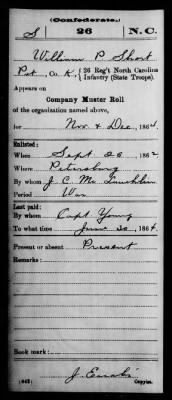 (Confederate.)
S 26 N. C.
William P Short
Pvt, Co. K, 26 Reg't North Carolina
Infantry (State Troops).
Appears on
Company Muster Roll
of the organization named above,
for Nov & Dec, 1864.
Enlisted:
When Sept 26, 1862
Where Petersburg
By whom J. C. Mc Lauchlin
Period War
Last paid:
By whom Capt Young
To what time June 30, 1864.
Present or absent Present
Remarks:
Book mark:
(642) J.
Copyist.